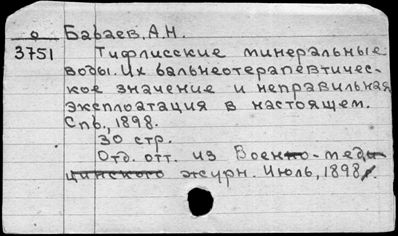 о
3751
Бабаев, А.Н.
Тифлисские минеральные
воды. Их бальнеотерапевтичес-
кое значение и неправильная
эксплоатация в настоящем.
Спб., 1898.
30 стр.
Отд. отт. из Военно-меди
цинского журн. Июль, 1898.